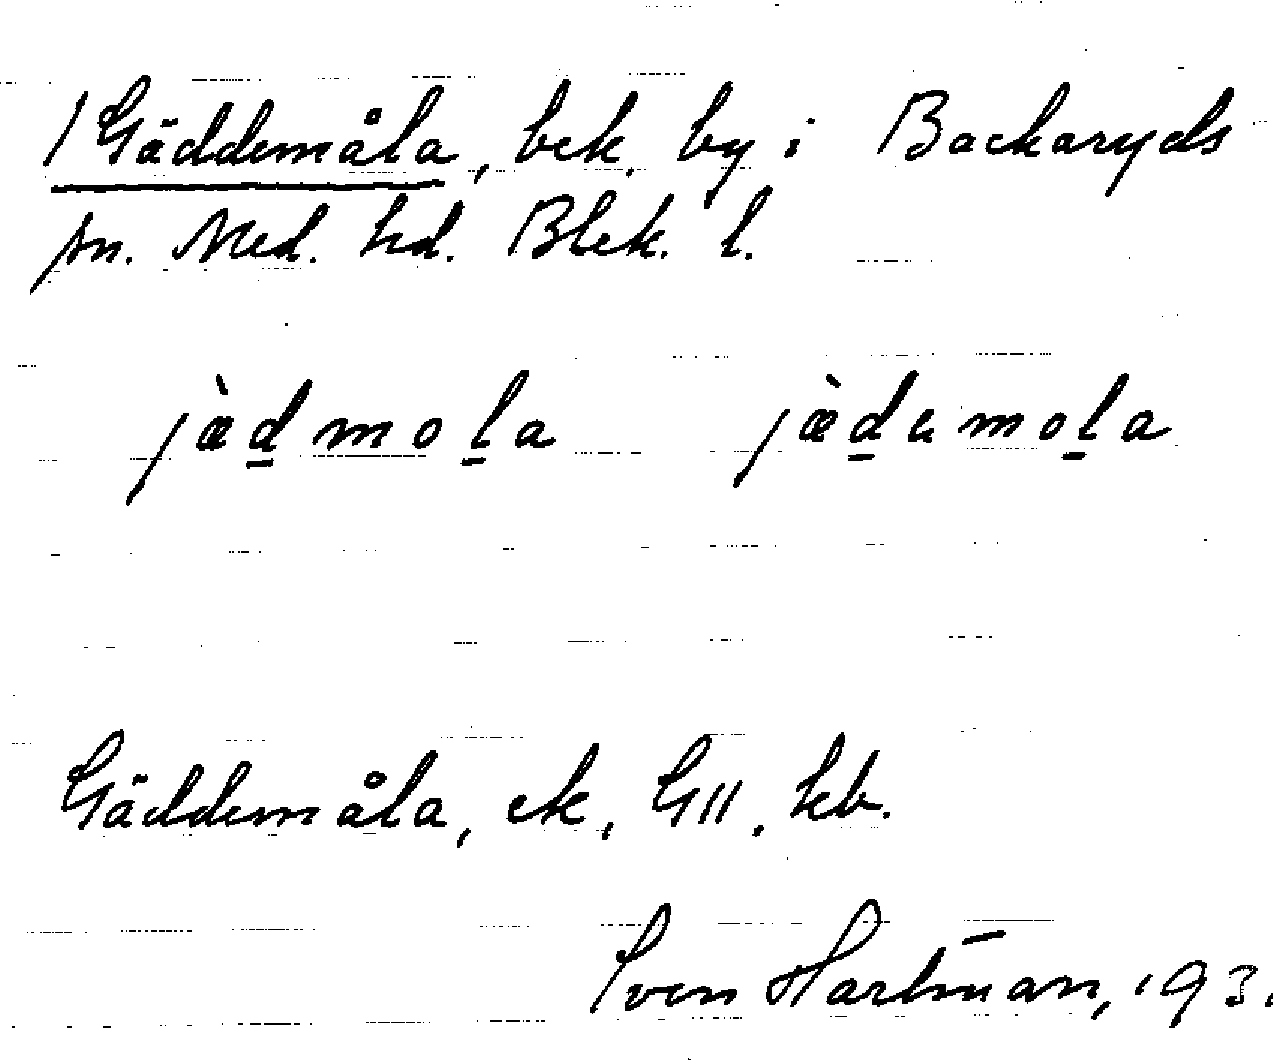 / Gäddemåla, bek. by i Backaryds
sn. Med. hd. Blek. l.
jæ̀d̲mol̲a jæ̀d̲amol̲a
Gäddemåla, ek, GII. kb.
Sven Hartman, 193.